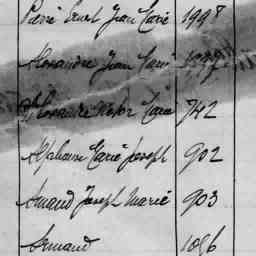 Pierre Ernest Jean Marie 1998
Alexandre Jean Marie
Alexandre Victor Marie 742
Alphonse Marie Joseph 902
Amand Joseph Marie 903
Armand 1086